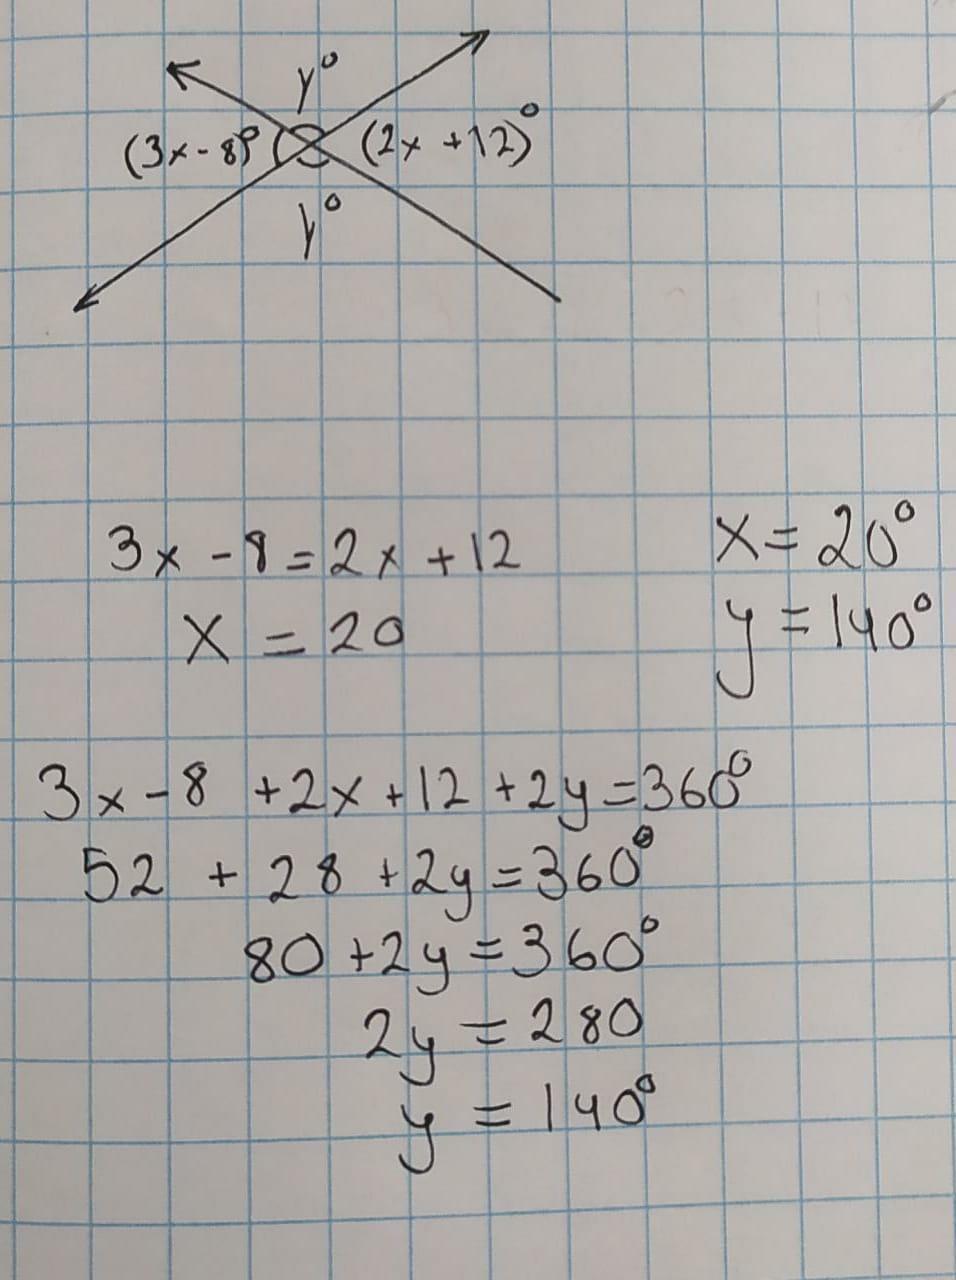 y°
(3x-8)° (2x+12)°
y°
3x-8=2x+12
x=20°
x=20
y=140°
3x-8+2x+12+2y=360°
52+28+2y=360°
80+2y=360°
2y=280
y=140°